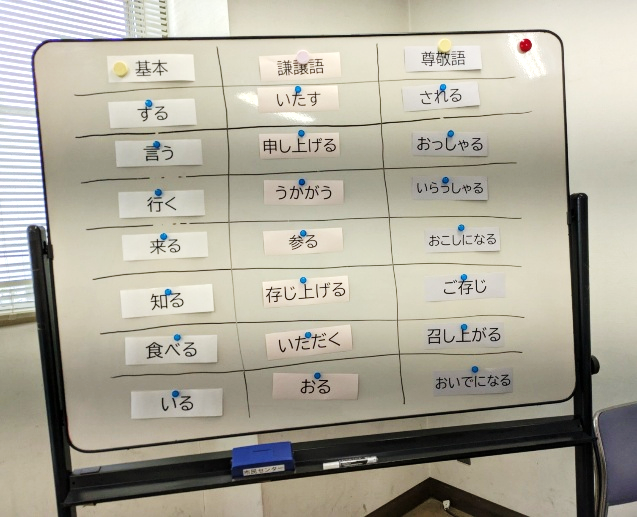 基本 謙譲語 尊敬語
する いたす される
言う 申し上げる おっしゃる
行く うかがう いらっしゃる
来る 参る おこしになる
知る 存じ上げる ご存じ
食べる いただく 召し上がる
いる おる おいでになる
市民センター